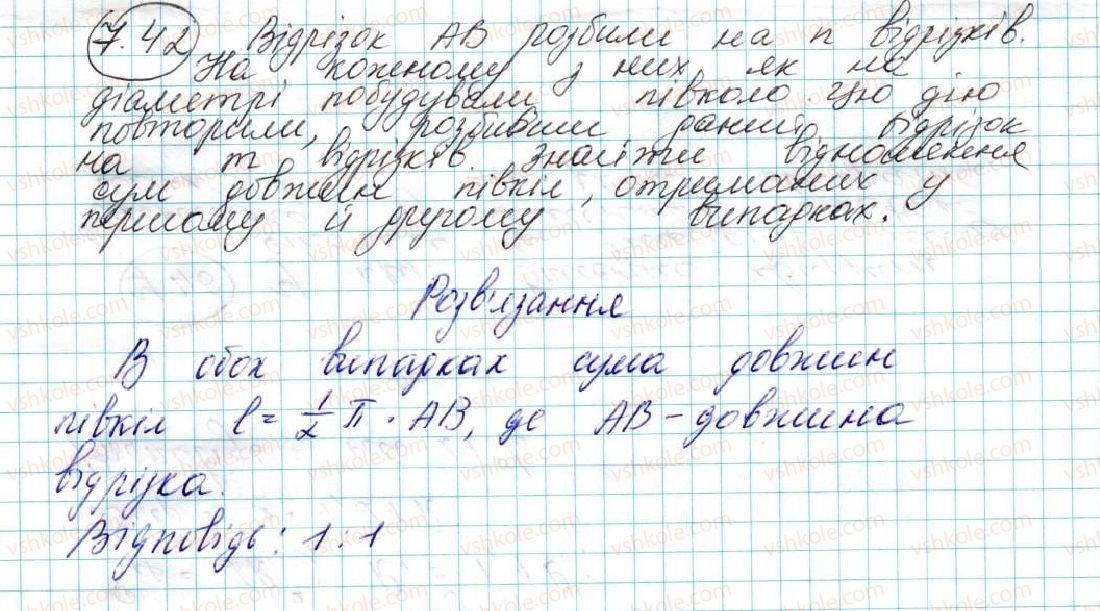 7.42 Відрізок AB розбили на n відрізків.
На кожному з них, як на
діаметрі побудували півколо. Цю дію
повторили, розбивши даний відрізок
на m відрізків. Знайти відношення
сум довжин півкіл, отриманих у
першому й другому випадках.
Розв'язання
В обох випадках сума довжин
півкіл l = 1/2 π · AB, де AB – довжина
відрізка.
Відповідь: 1:1